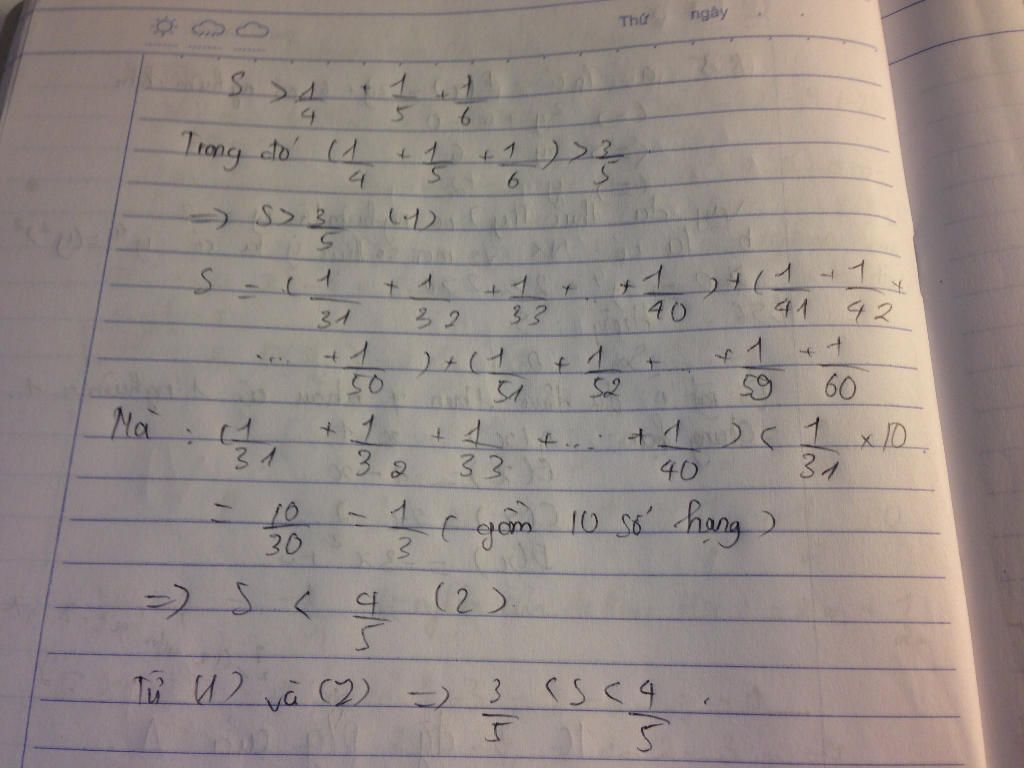 Thứ ngày
S > 1/4 + 1/5 + 1/6
Trong đó (1/4 + 1/5 + 1/6) > 3/5
=> S > 3/5 (1)
S = (1/31 + 1/32 + 1/33 + ... + 1/40) + (1/41 + 1/42 +
... + 1/50) + (1/51 + 1/52 + ... + 1/59 + 1/60
Mà : (1/31 + 1/32 + 1/33 + ... + 1/40) < 1/31 × 10
= 10/30 = 1/3 (gồm 10 số hạng)
=> S < 4/5 (2)
Từ (1) và (2) => 3/5 < S < 4/5 .